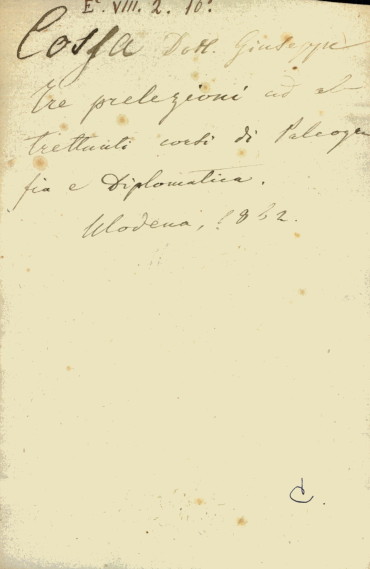 E. VIII. 2. 10.
Cossa Dott. Giuseppe
Tre prelezioni ad al-
trettanti corsi di Paleogra
fia e Diplomatica.
Modena, 1862.
C.